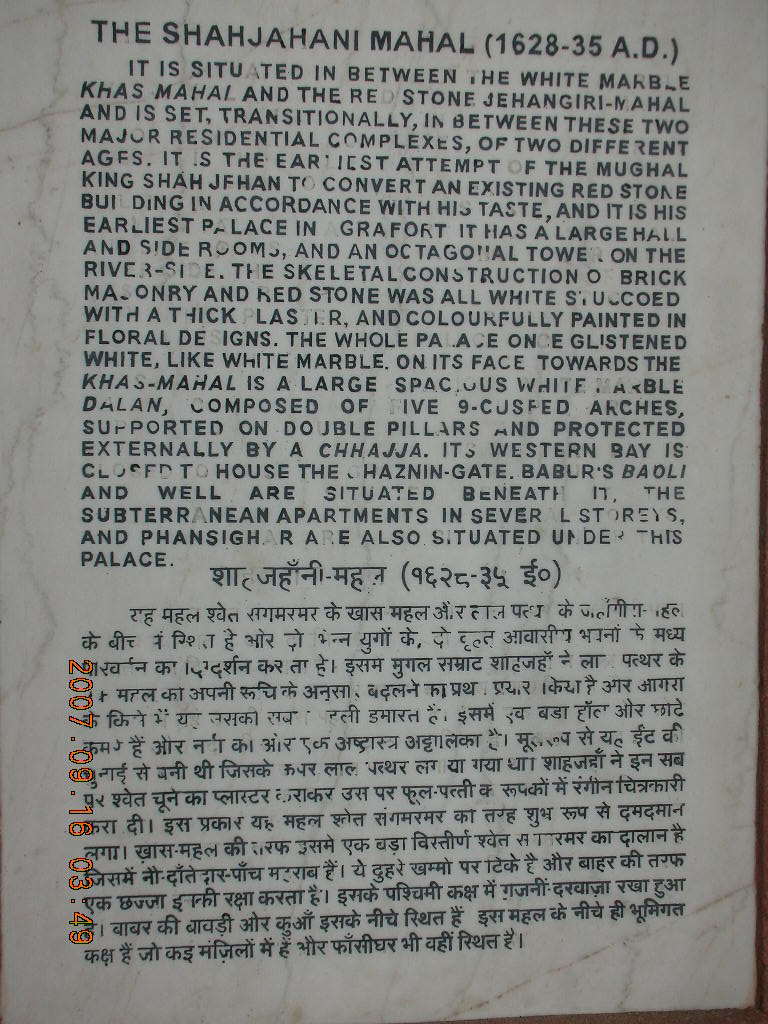 THE SHAHJAHANI MAHAL (1628-35 A.D.)
IT IS SITUATED IN BETWEEN THE WHITE MARBLE
KHAS MAHAL AND THE RED STONE JEHANGIRI-MAHAL
AND IS SET, TRANSITIONALLY, IN BETWEEN THESE TWO
MAJOR RESIDENTIAL COMPLEXES, OF TWO DIFFERENT
AGES. IT IS THE EARLIEST ATTEMPT OF THE MUGHAL
KING SHAH JEHAN TO CONVERT AN EXISTING RED STONE
BUILDING IN ACCORDANCE WITH HIS TASTE, AND IT IS HIS
EARLIEST PALACE IN AGRAFORT IT HAS A LARGE HALL
AND SIDE ROOMS, AND AN OCTAGONAL TOWER ON THE
RIVER-SIDE. THE SKELETAL CONSTRUCTION OF BRICK
MASONRY AND RED STONE WAS ALL WHITE STUCCOED
WITH A THICK PLASTER, AND COLOURFULLY PAINTED IN
FLORAL DESIGNS. THE WHOLE PALACE ONCE GLISTENED
WHITE, LIKE WHITE MARBLE. ON ITS FACE TOWARDS THE
KHAS-MAHAL IS A LARGE SPACIOUS WHITE MARBLE
DALAN, COMPOSED OF FIVE 9-CUSPED ARCHES,
SUPPORTED ON DOUBLE PILLARS AND PROTECTED
EXTERNALLY BY A CHHAJJA. ITS WESTERN BAY IS
CLOSED TO HOUSE THE GHAZNIN-GATE. BABUR'S BAOLI
AND WELL ARE SITUATED BENEATH IT, THE
SUBTERRANEAN APARTMENTS IN SEVERAL STOREYS,
AND PHANSIGHAR ARE ALSO SITUATED UNDER THIS
PALACE.
शाहजहाँनी-महल (१६२८-३५ ई०)
यह महल श्वेत संगमरमर के खास महल और लाल पत्थर के जहाँगीरी-महल
के बीच में स्थित है और दो भिन्न युगों के, दो वृहत आवासीय भवनों के मध्य
परिवर्तन का दिग्दर्शन करता है। इसमें मुगल सम्राट शाहजहाँ ने लाल पत्थर के
महल को अपनी रूचि के अनुसार बदलने का प्रथम प्रयास किया है और आगरा
के किले में यह उसकी सबसे पहली इमारत है। इसमें एक बड़ा हॉल और छोटे
कमरे हैं और नदी की ओर एक अष्टास्त्र अट्टालिका है। मूलरूप से यह ईंट की
चुनाई से बनी थी जिसके ऊपर लाल पत्थर लगाया गया था। शाहजहाँ ने इन सब
पर श्वेत चूने का प्लास्टर कराकर उस पर फूल-पत्ती के रूपकों में रंगीन चित्रकारी
करा दी। इस प्रकार यह महल श्वेत संगमरमर की तरह शुभ्र रूप से दमदमाने
लगा। खास-महल की तरफ इसमें एक बड़ा विस्तीर्ण श्वेत संगमरमर का दालान है
जिसमें नौ-दाँतेदार-पाँच महराब हैं। ये दुहरे खम्भों पर टिके हैं और बाहर की तरफ
एक छज्जा इनकी रक्षा करता है। इसके पश्चिमी कक्ष में ग़जनीं-दरवाज़ा रखा हुआ
है। बाबर की बावड़ी और कुआँ इसके नीचे स्थित हैं इस महल के नीचे ही भूमिगत
कक्ष हैं जो कई मंज़िलों में हैं और फाँसीघर भी वहीं स्थित है।
2007.09.16 03:49